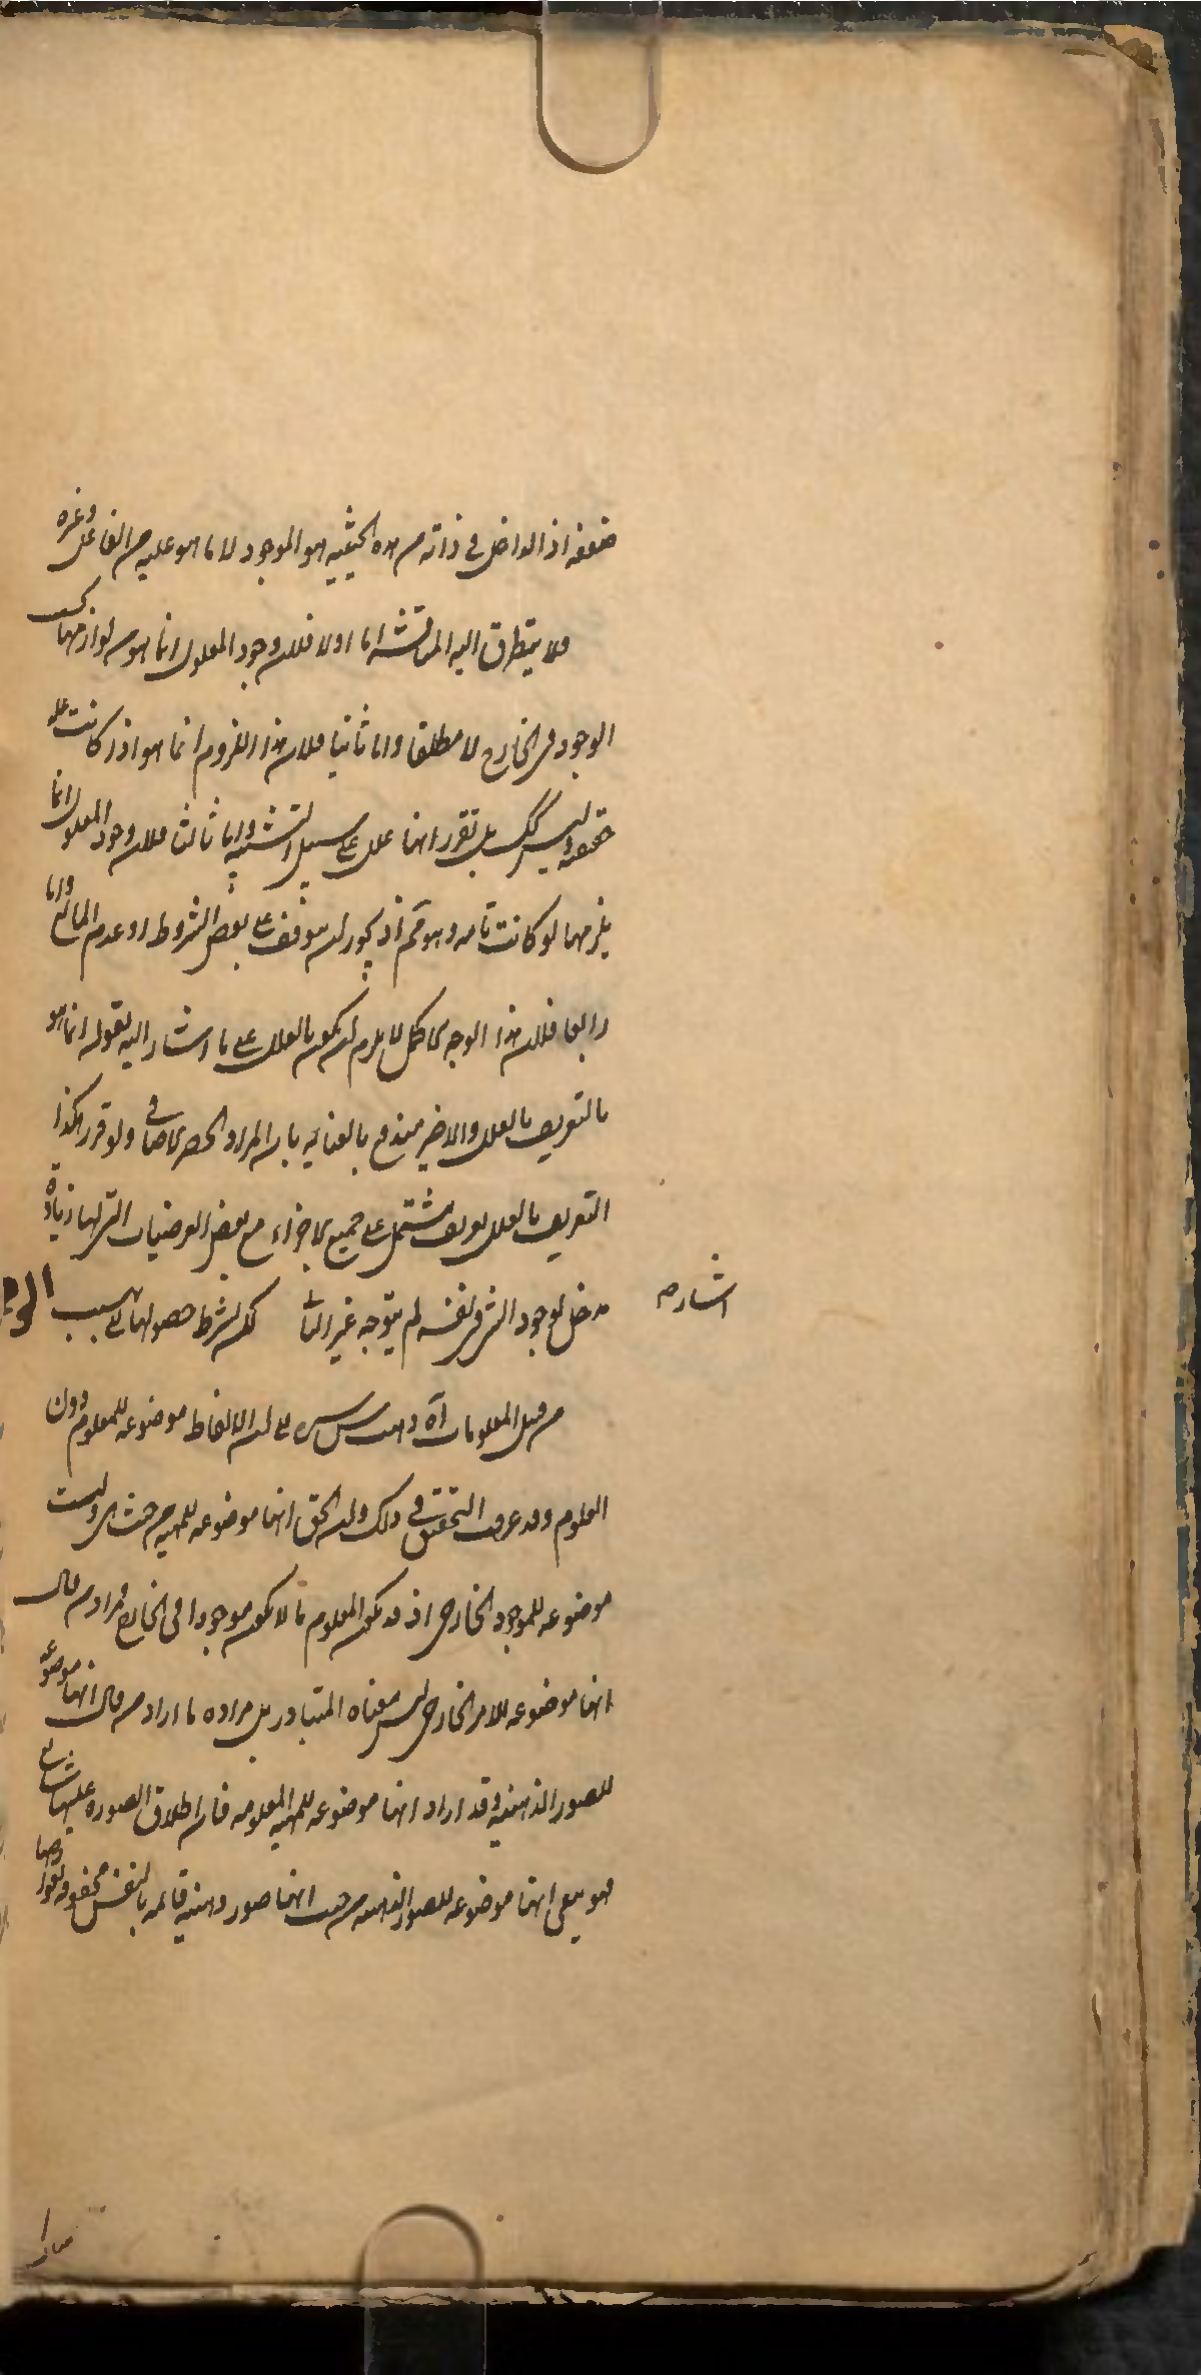 ضعفه اذ الداخل في ذاته من هذه الحيثيه هو الموجود لا ما هو عليه من الفاعل وغيره
فلا يتطرق اليه المناقشه اما اولا فلان وجود المعلول انما هو من لوازمها
الوجود في الخارج لا مطلقا واما ثانيا فلان هذا اللزوم انما هو اذا كانت علة
حقيقة وليس كك بل تقرر انها علل على سبيل التشبيه واما ثالثا فلان وجود المعلول انما
يلزمها لو كانت تامه وهو مم اذ يجوز ان يتوقف على بعض الشروط او عدم المانع واما
رابعا فلان هذا الوجه لا يلزم ان يكون بالعلل على ما اشار اليه بقوله انما هو
بالتعريف بالعلل والاخير مندفع بالعنايه بان المراد الحصر الاضافي ولو قرر هكذا
التعريف بالعلل تعريف مشتمل على جميع الاجزاء مع بعض العرضيات التي لها زيادة
مدخل لوجود الشي في نفسه لم يتوجه غير الثاني لكن بشرط حصولها في
اشاره
من قبيل المعلومات آه ان الالفاظ موضوعه للمعلوم دون
العلوم وقد عرفت التحقيق في ذلك وان الحق انها موضوعه للمهيه من حيث هي وليست
موضوعه للموجود الخارجي اذ قد يكون المعلوم ما لا يكون موجودا في الخارج ومراد من قال
انها موضوعه للامر الخارجي ليس معناه المتبادر بل مراده ما اراد من قال انها موضوعه
للصور الذهنيه وقد اراد انها موضوعه للمهيه المعلومه فان اطلاق الصوره عليها شايع
فهو يعني انها موضوعه للصور الذهنيه من حيث انها صور ذهنيه قايمه بالنفس